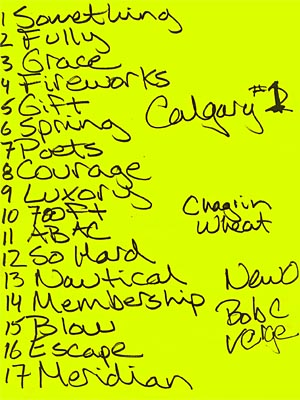 1 Something
2 Fully
3 Grace
4 Fireworks
5 Gift
6 Spring
7 Poets
8 Courage
9 Luxory
10 700 Ft
11 ABAC
12 So Hard
13 Nautical
14 Membership
15 Blow
16 Escape
17 Meridian
Calgary #1
Chagrin
Wheat
NewO
Bob C
verge